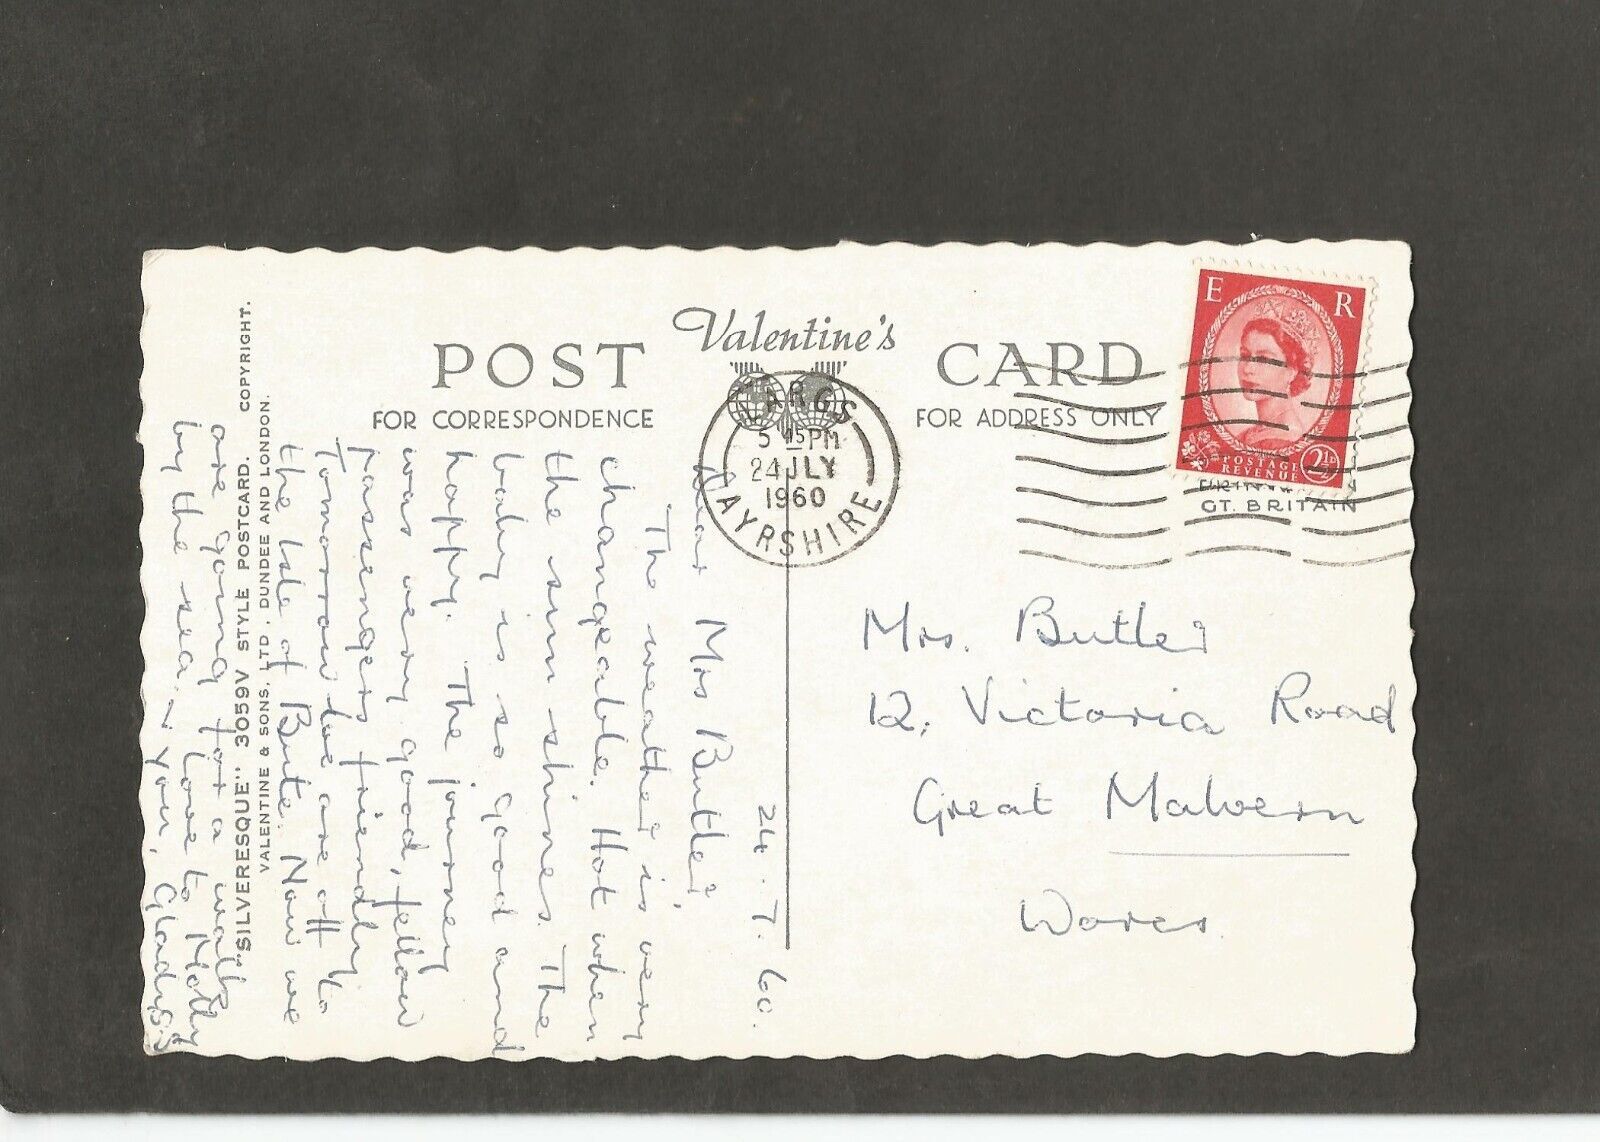 POST
Valentine's
CARD
FOR CORRESPONDENCE
FOR ADDRESS ONLY
E R
POSTAGE
REVENUE
2½D
GT. BRITAIN
LARGS
5 15 PM
24 JLY
1960
AYRSHIRE
24.7.60.
Dear Mrs Butler,
The weather is very
changeable. Hot when
the sun shines. The
baby is so good and
happy. The journey
was very good, fellow
passengers friendly.
Tomorrow we are off to
the Isle of Bute. Now we
are going for a walk
by the sea. Love to Molly
& you, Gladys
"SILVERESQUE" 3059V STYLE POSTCARD. COPYRIGHT.
VALENTINE & SONS, LTD., DUNDEE AND LONDON.
Mrs. Butler
12, Victoria Road
Great Malvern
Worcs